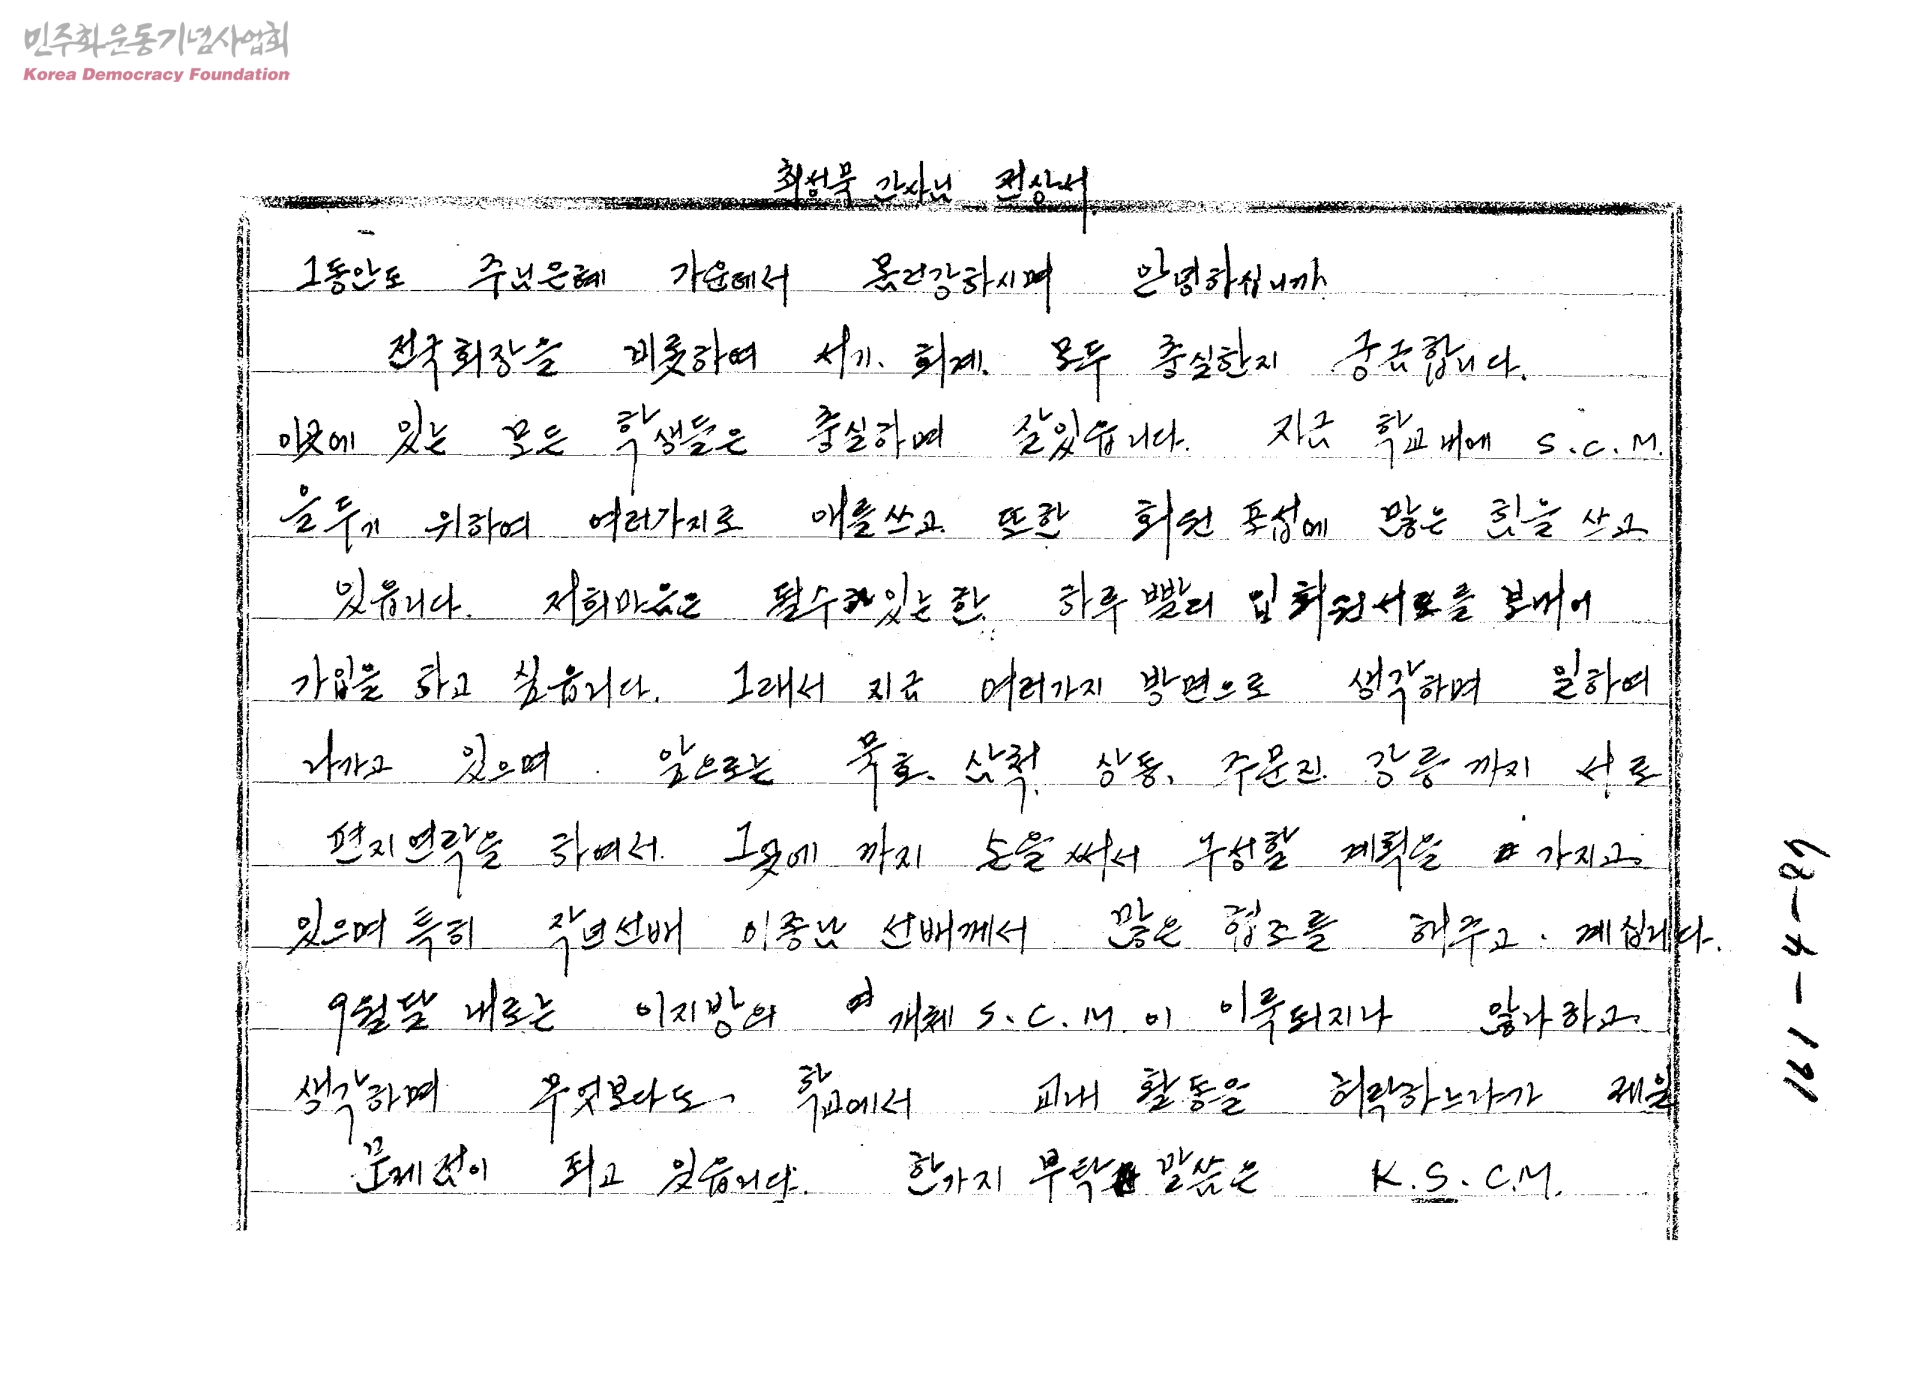 민주화운동기념사업회
Korea Democracy Foundation
최성묵 간사님 전상서.
그동안도 주님은혜 가운데서 몸건강하시며 안녕하십니까
전국회장을 비롯하여 서기. 회계. 모두 충실한지 궁금합니다.
이곳에 있는 모든 학생들은 충실하며 잘있읍니다. 지금 학교내에 S.C.M.
을 두기 위하여 여러가지로 애를쓰고 또한 회원 포섭에 많은 힘을 쓰고
있읍니다. 저희마음은 될수 있는한 하루 빨리 입회원서를 보내어
가입을 하고 싶읍니다. 그래서 지금 여러가지 방면으로 생각하며 일하여
나가고 있으며 앞으로는 묵호. 삼척. 상동. 주문진. 강릉까지 서로
편지연락을 하여서 그곳에 까지 손을 써서 구성할 계획을 가지고
있으며 특히 작년선배 이종남 선배께서 많은 협조를 해주고 계십니다.
9월달 내로는 이지방의 연개체 S.C.M.이 이룩되지나 않나하고
생각하며 무엇보다도 학교에서 교내 활동을 허락하느냐가 제일
문제점이 되고 있읍니다. 한가지 부탁 말씀은 K.S.C.M.
68-4-191